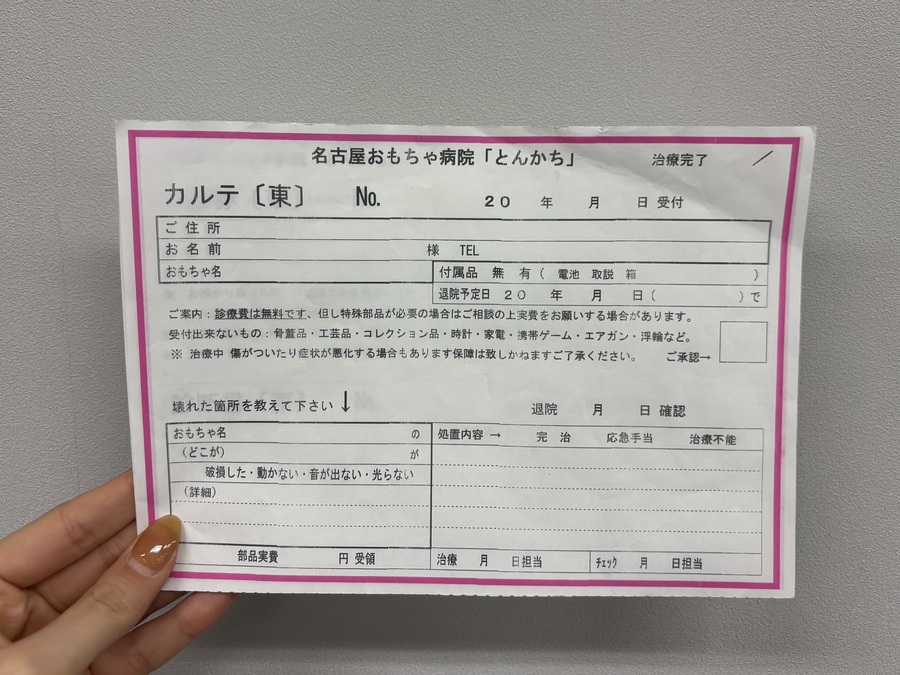 名古屋おもちゃ病院「とんかち」 治療完了 ／
カルテ〔東〕 No. 20 年 月 日 受付
ご住所
お名前 様 TEL
おもちゃ名 付属品 無 有（ 電池 取説 箱 ）
退院予定日 20 年 月 日（ ）で
ご案内：診療費は無料です、但し特殊部品が必要の場合はご相談の上実費をお願いする場合があります。
受付出来ないもの：骨董品・工芸品・コレクション品・時計・家電・携帯ゲーム・エアガン・浮輪など。
※ 治療中 傷がついたり症状が悪化する場合もあります保障は致しかねますご了承ください。 ご承認→
壊れた箇所を教えて下さい↓ 退院 月 日 確認
おもちゃ名 の 処置内容 → 完治 応急手当 治療不能
（どこが） が
破損した・動かない・音が出ない・光らない
（詳細）
部品実費 円 受領 治療 月 日担当 ﾁｪｯｸ 月 日担当